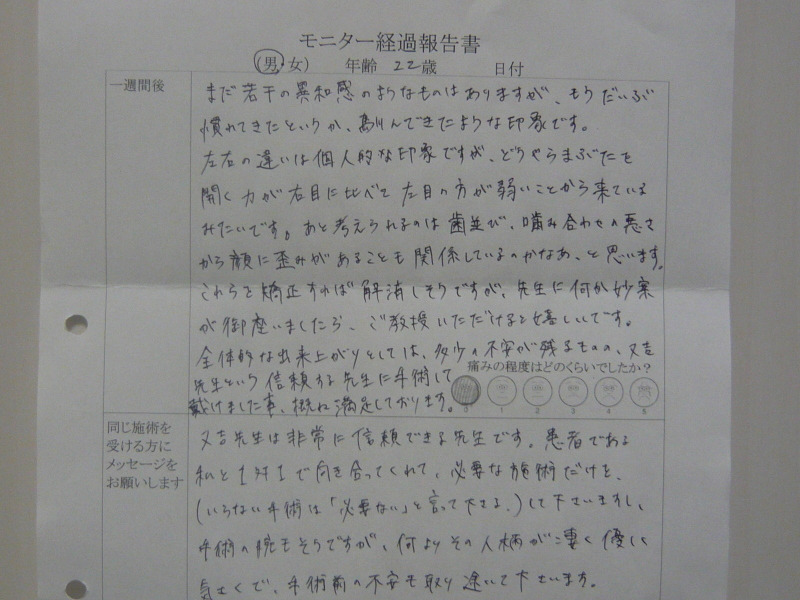 モニター経過報告書
(男 女) 年齢 22歳 日付
一週間後
まだ若干の異和感のようなものはありますが、もうだいぶ
慣れてきたというか、馴んできたような印象です。
左右の違いは個人的な印象ですが、どうやらまぶたを
開く力が右目に比べて左目の方が弱いことから来ている
みたいです。あと考えられるのは歯並び、噛み合わせの悪さ
から顔に歪みがあることも関係しているのかなあ、と思います。
これらを矯正すれば解消しそうですが、先生に何か妙案
が御座いましたら、ご教授いただけると嬉しいです。
全体的な出来上がりとしては、多少の不安が残るものの、又吉
先生という信頼する先生に手術して
戴けました事、概ね満足しております。
痛みの程度はどのくらいでしたか？
0 1 2 3 4 5
同じ施術を
受ける方に
メッセージを
お願いします
又吉先生は非常に信頼できる先生です。患者である
私と1対1で向き合ってくれて、必要な施術だけを、
(いらない手術は「必要ない」と言って下さる。)して下さいますし、
手術の腕もそうですが、何よりその人柄が凄く優しく
気さくで、手術前の不安も取り除いて下さいます。